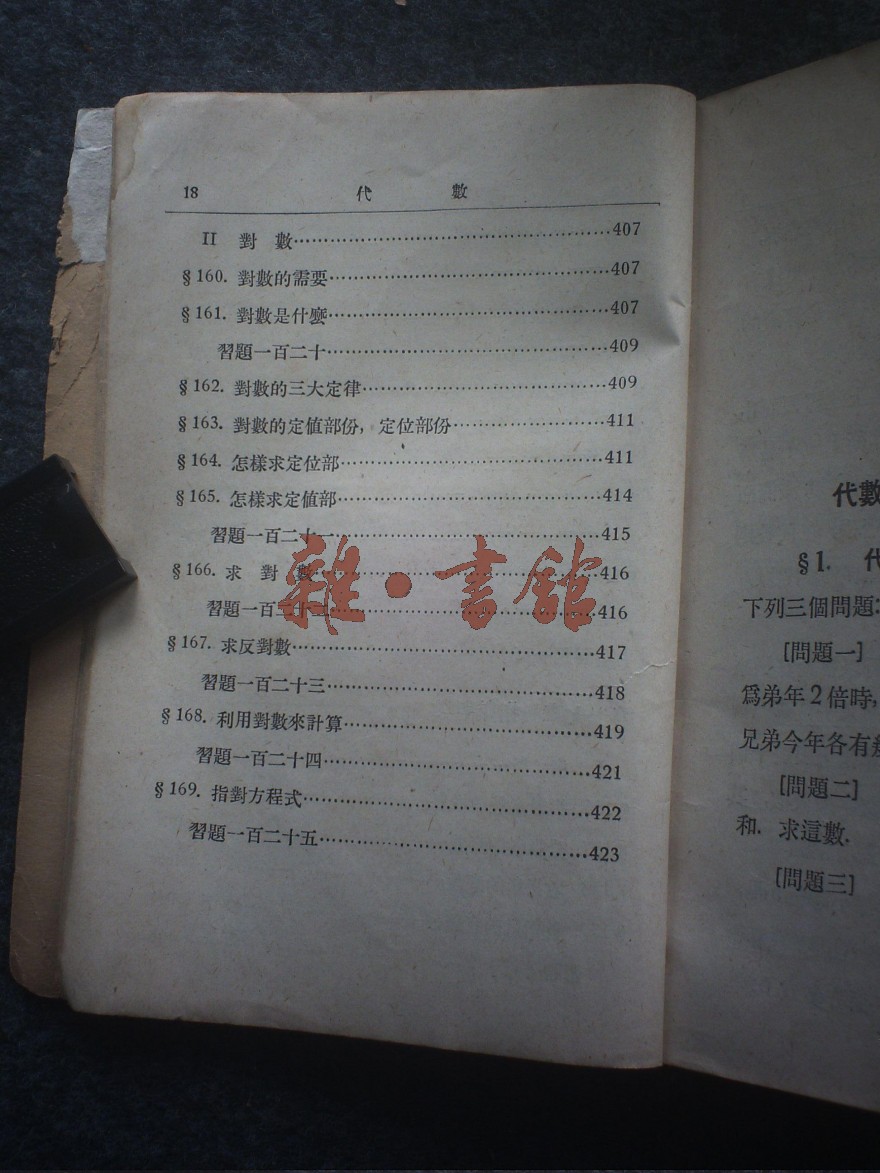 18 代 數
II 對 數……407
§160. 對數的需要……407
§161. 對數是什麼……407
習題一百二十……409
§162. 對數的三大定律……409
§163. 對數的定值部份, 定位部份……411
§164. 怎樣求定位部……411
§165. 怎樣求定值部……414
習題一百二十一……415
§166. 求 對 數……416
習題一百二十二……416
§167. 求反對數……417
習題一百二十三……418
§168. 利用對數來計算……419
習題一百二十四……421
§169. 指對方程式……422
習題一百二十五……423
雜·書館
代數
§1. 代
下列三個問題:
[問題一]
爲弟年2倍時,
兄弟今年各有
[問題二]
和. 求這數.
[問題三]